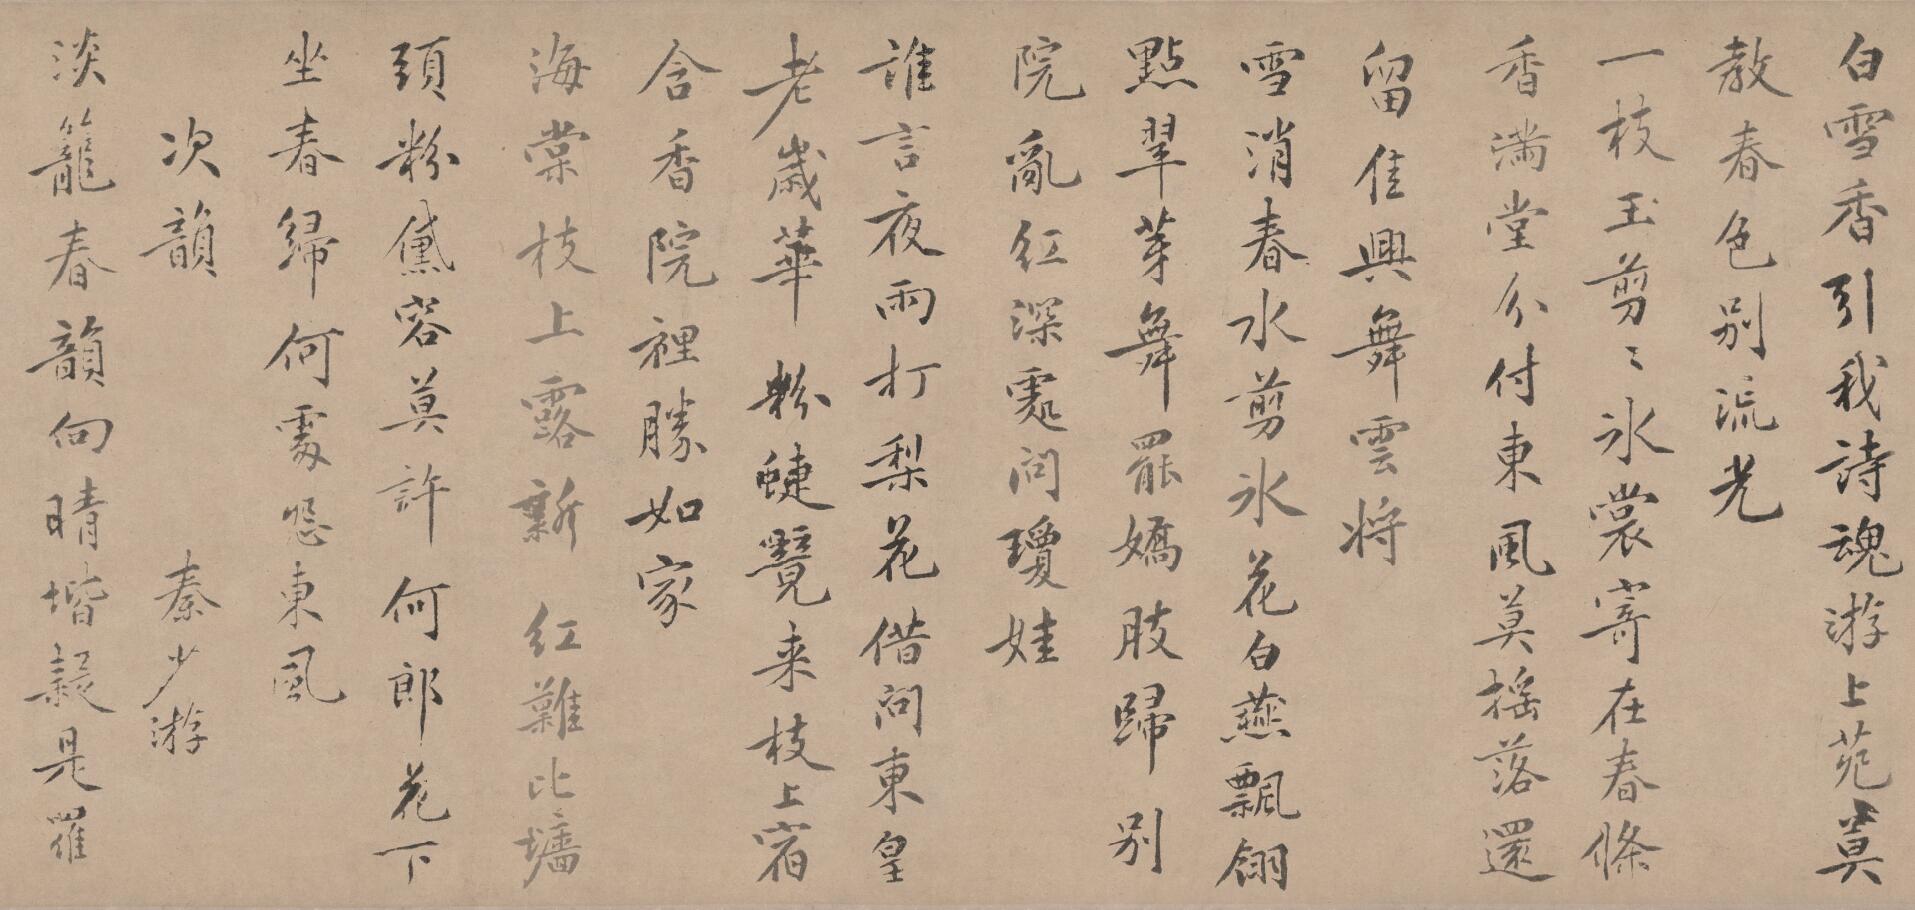 白雪香引我詩魂游上苑莫
教春色別流光
一枝玉剪〻冰裳寄在春條
香滿堂分付東風莫摇落還
留佳興舞雲將
雪消春水剪冰花白燕飄翎
點翠芽舞罷嬌肢歸別
院亂紅深處問瓊娃
誰言夜雨打梨花借問東皇
老歲華粉蜨覽来枝上宿
含香院裡勝如家
海棠枝上露新紅難比墻
頭粉黛容莫許何郎花下
坐春歸何處怨東風
次韻 秦少游
淡籠春韻向晴堦疑是羅